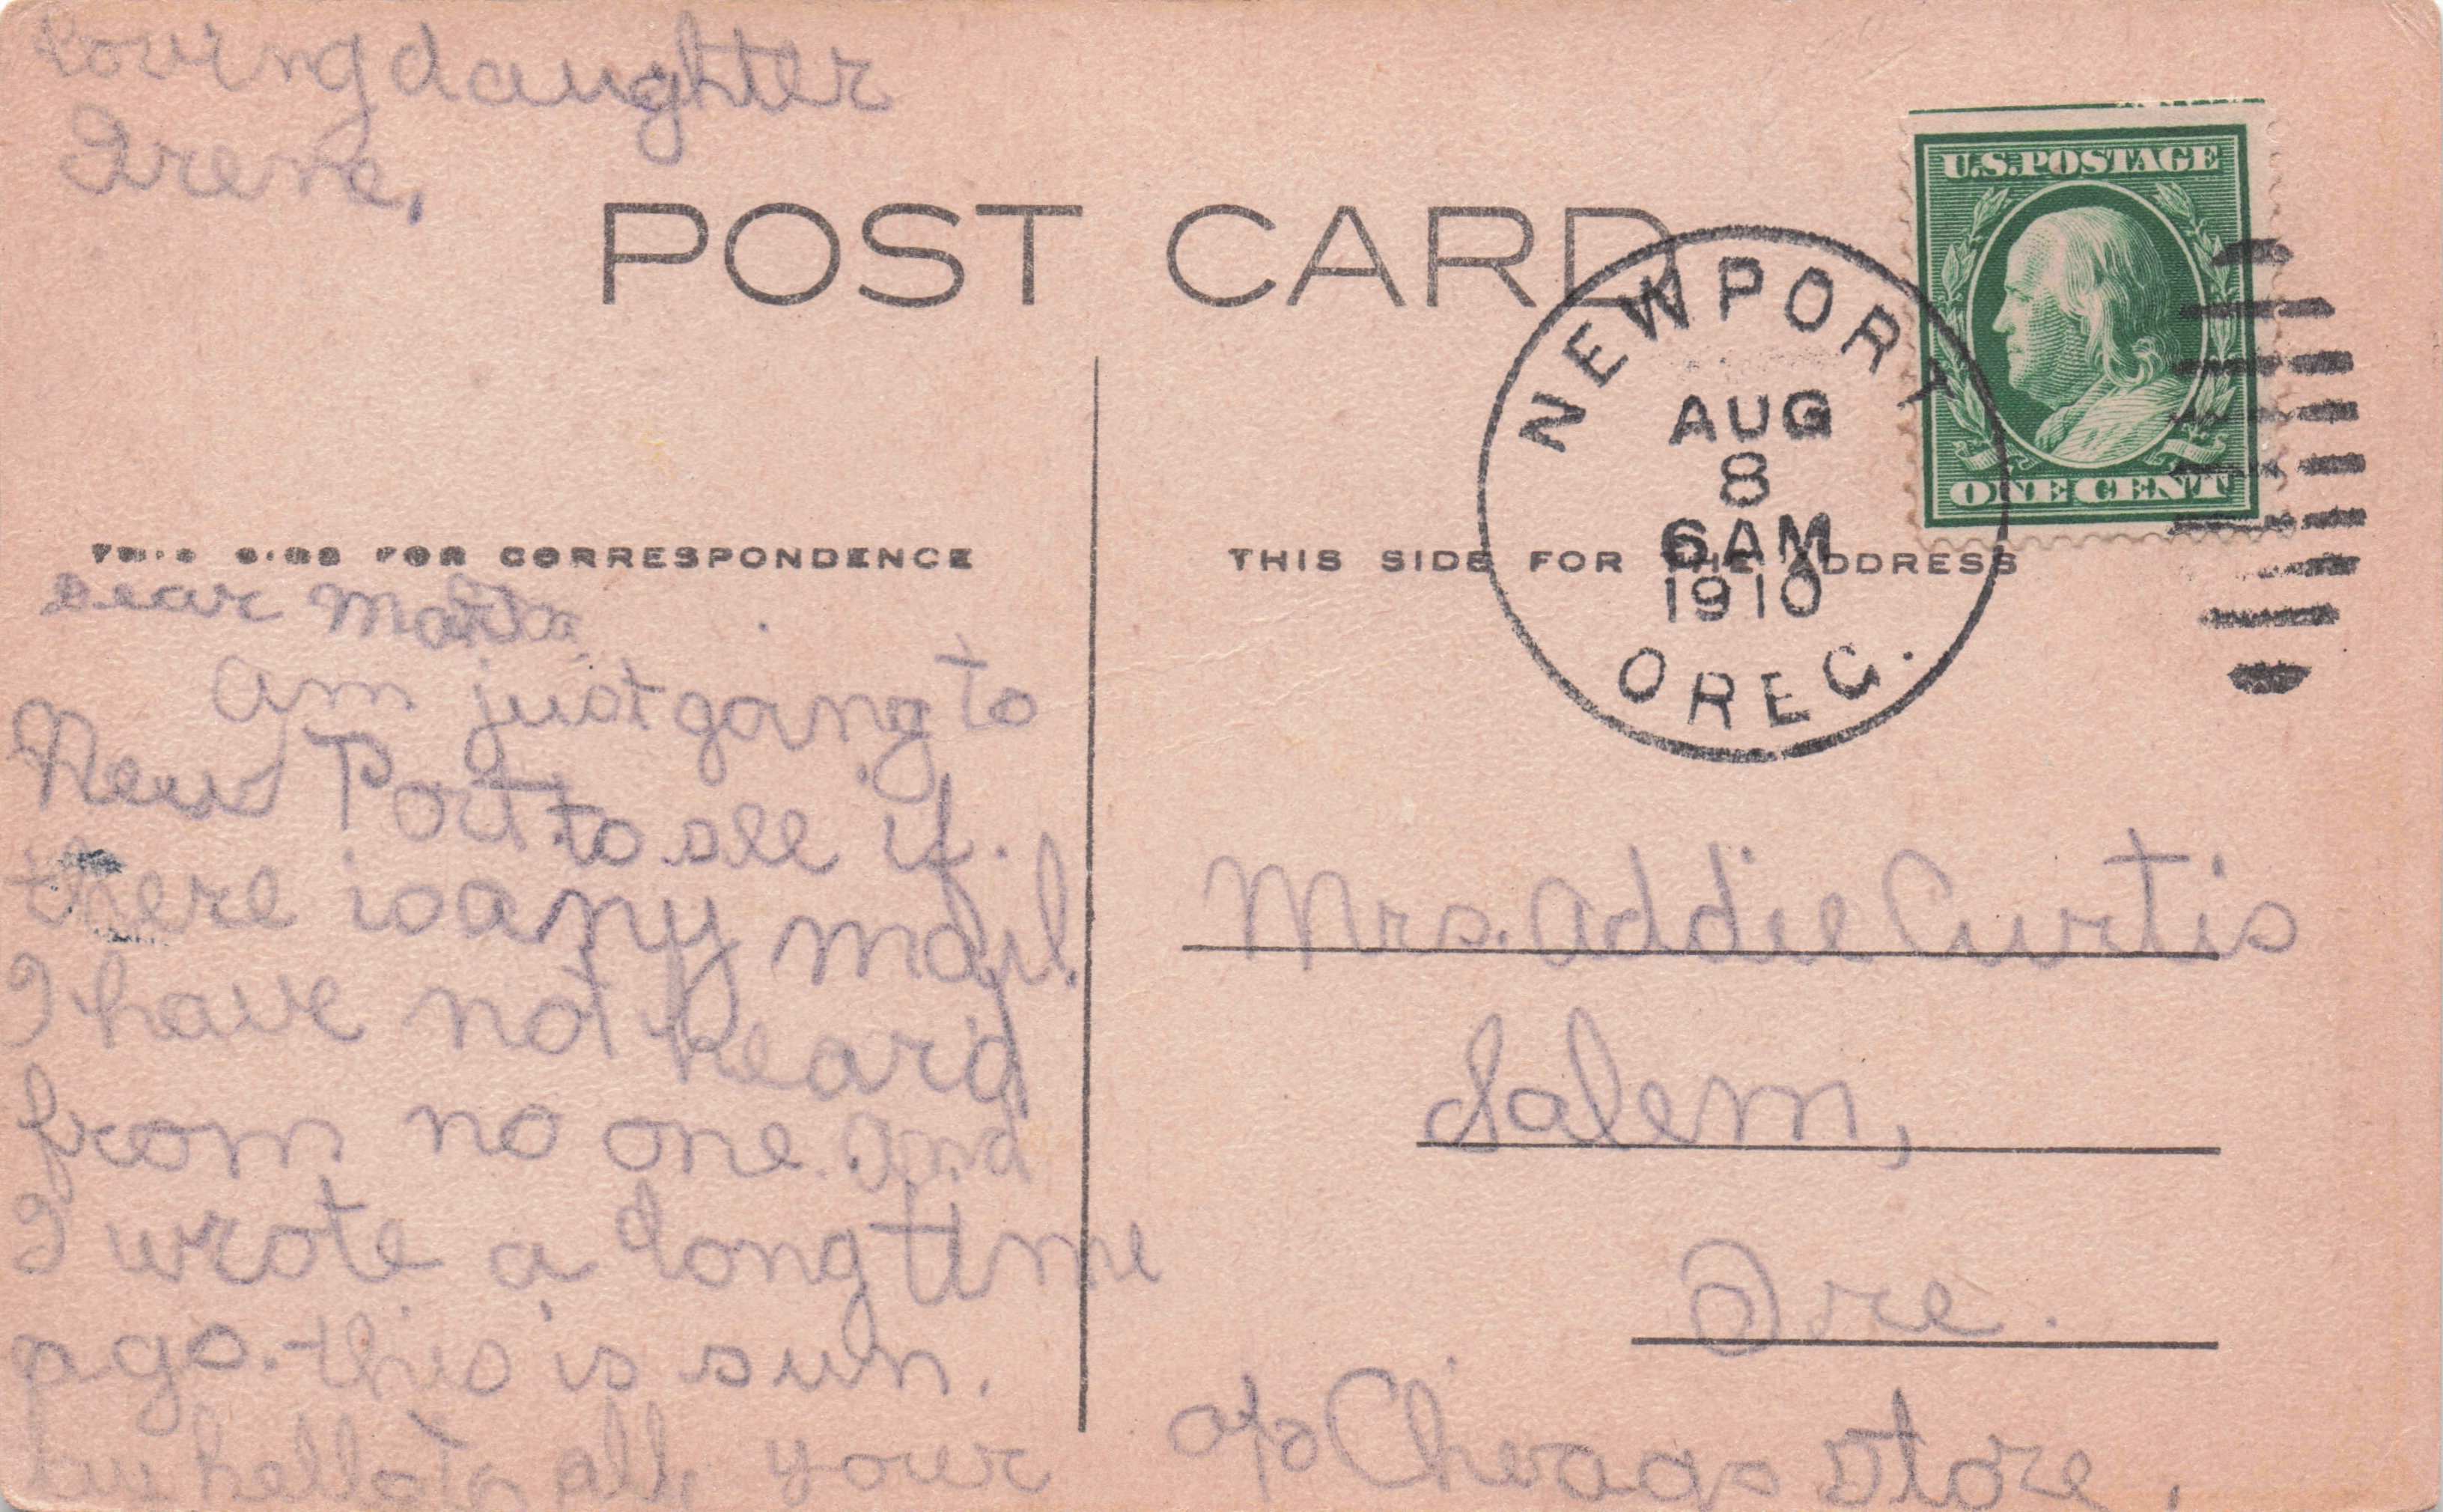 loving daughter
Irene,
POST CARD
U.S. POSTAGE
ONE CENT
NEWPORT
AUG
8
6AM
1910
OREG.
THIS SIDE FOR CORRESPONDENCE
THIS SIDE FOR THE ADDRESS
Dear
am just going to
New Port to see if
there is any mail.
I have not heard
from no one. and
I wrote a long time
ago. this is sun.
hello to all your
Mrs. Addie Curtis
Salem,
Ore.
Chicago Store.